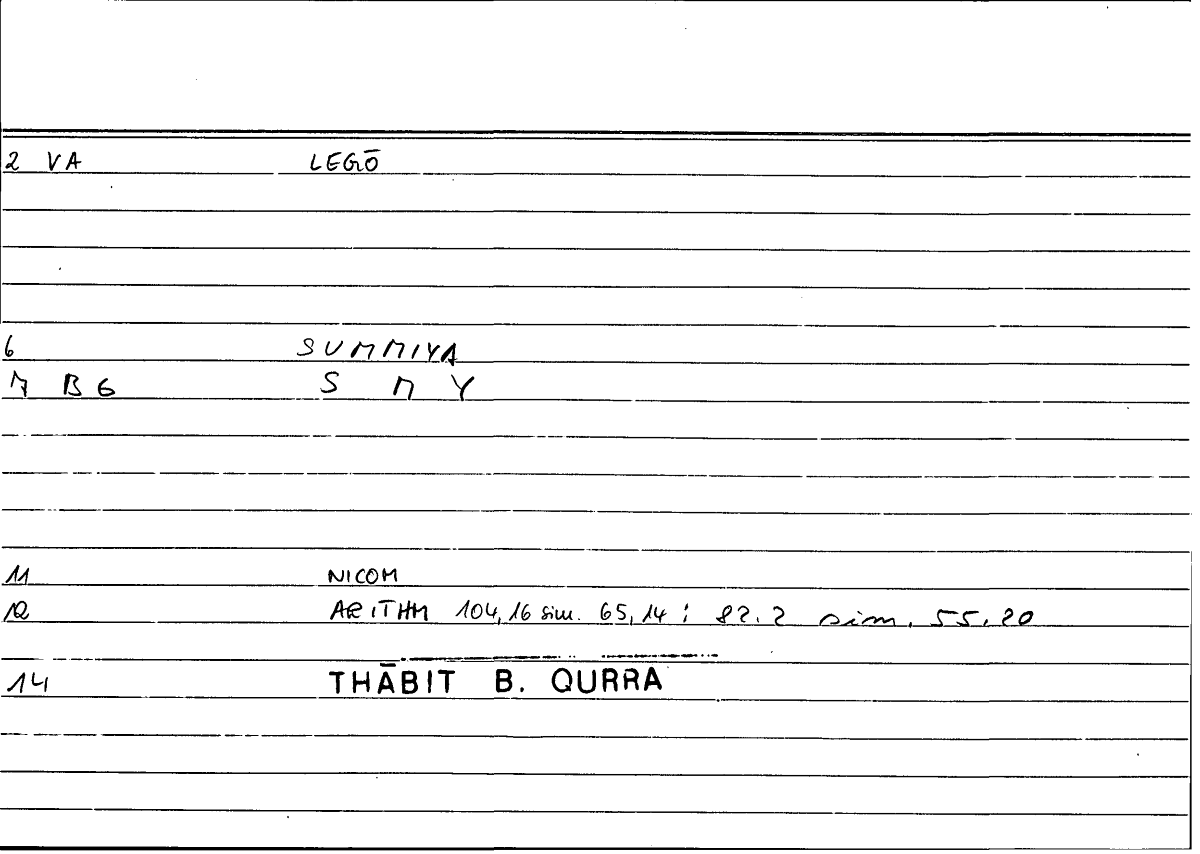 2 VA LEGŌ
6 SUMMIYA
7 B6 S M Y
11 NICOM
12 ARITHM 104,16 sim. 65,14 ; 82.2 sim. 55.20
14 THĀBIT B. QURRA